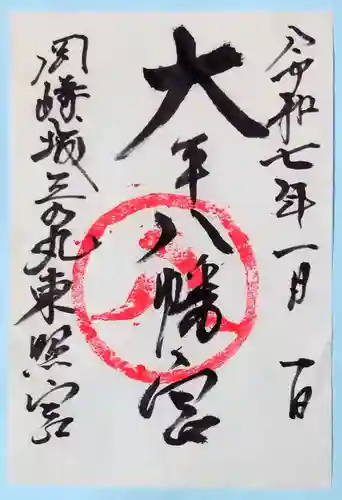 令和七年一月一日
大平八幡宮
岡崎城三の丸東照宮